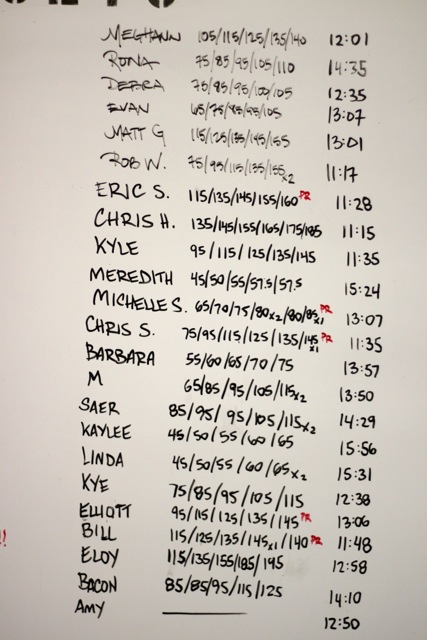 MEGHANN 105/115/125/135/140 12:01
RONA 75/85/95/105/110 14:35
DEBRA 75/85/95/100/105 12:35
EVAN 65/75/85/95/105 13:07
MATT G 115/125/135/145/155 13:01
ROB W. 75/95/115/135/155x2 11:17
ERIC S. 115/135/145/155/160 PR 11:28
CHRIS H. 135/145/155/165/175/185 11:15
KYLE 95/115/125/135/145 11:35
MEREDITH 45/50/55/57.5/57.5 15:24
MICHELLE S. 65/70/75/80x2/80/85x1 PR 13:07
CHRIS S. 75/95/115/125/135/145x1 PR 11:35
BARBARA 55/60/65/70/75 13:57
M 65/85/95/105/115x2 13:50
SAER 85/95/95/105/115x2 14:29
KAYLEE 45/50/55/60/65 15:56
LINDA 45/50/55/60/65x2 15:31
KYE 75/85/95/105/115 12:38
ELLIOTT 95/115/125/135/145 PR 13:06
BILL 115/125/135/145x1/140 PR 11:48
ELOY 115/135/155/185/195 12:58
BACON 85/85/95/115/125 14:10
AMY 12:50
!!